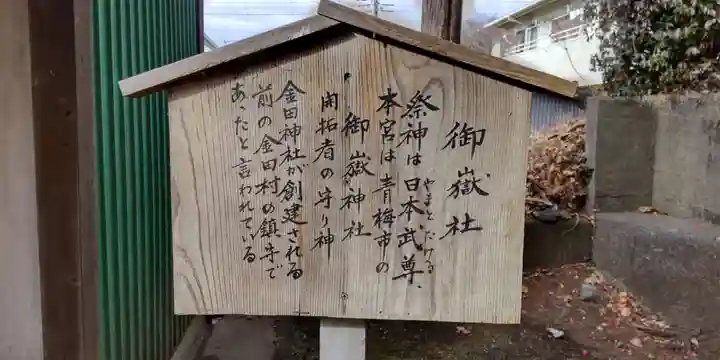 御嶽社
祭神は日本武尊、
やまとたける
本宮は青梅市の
御嶽神社
開拓者の守り神
金田神社が創建される
前の金田村の鎮守で
あったと言われている